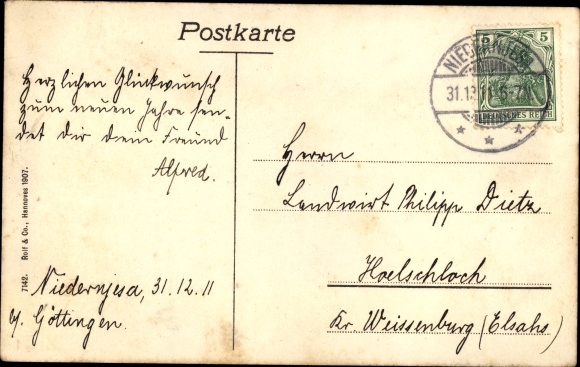 Postkarte
Herzlichen Glückwunsch
zum neuen Jahre sen-
det dir dein Freund
Alfred.
Niedernjesa, 31.12.11
b/. Göttingen.
7142. Rolf & Co., Hannover 1907.
5 5
DEUTSCHES REICH
NIEDERNJESA
31.12.11. 6-7N
Herrn
Landwirt Philipp Dietz
Hoelschloch
Kr. Weissenburg (Elsahs)